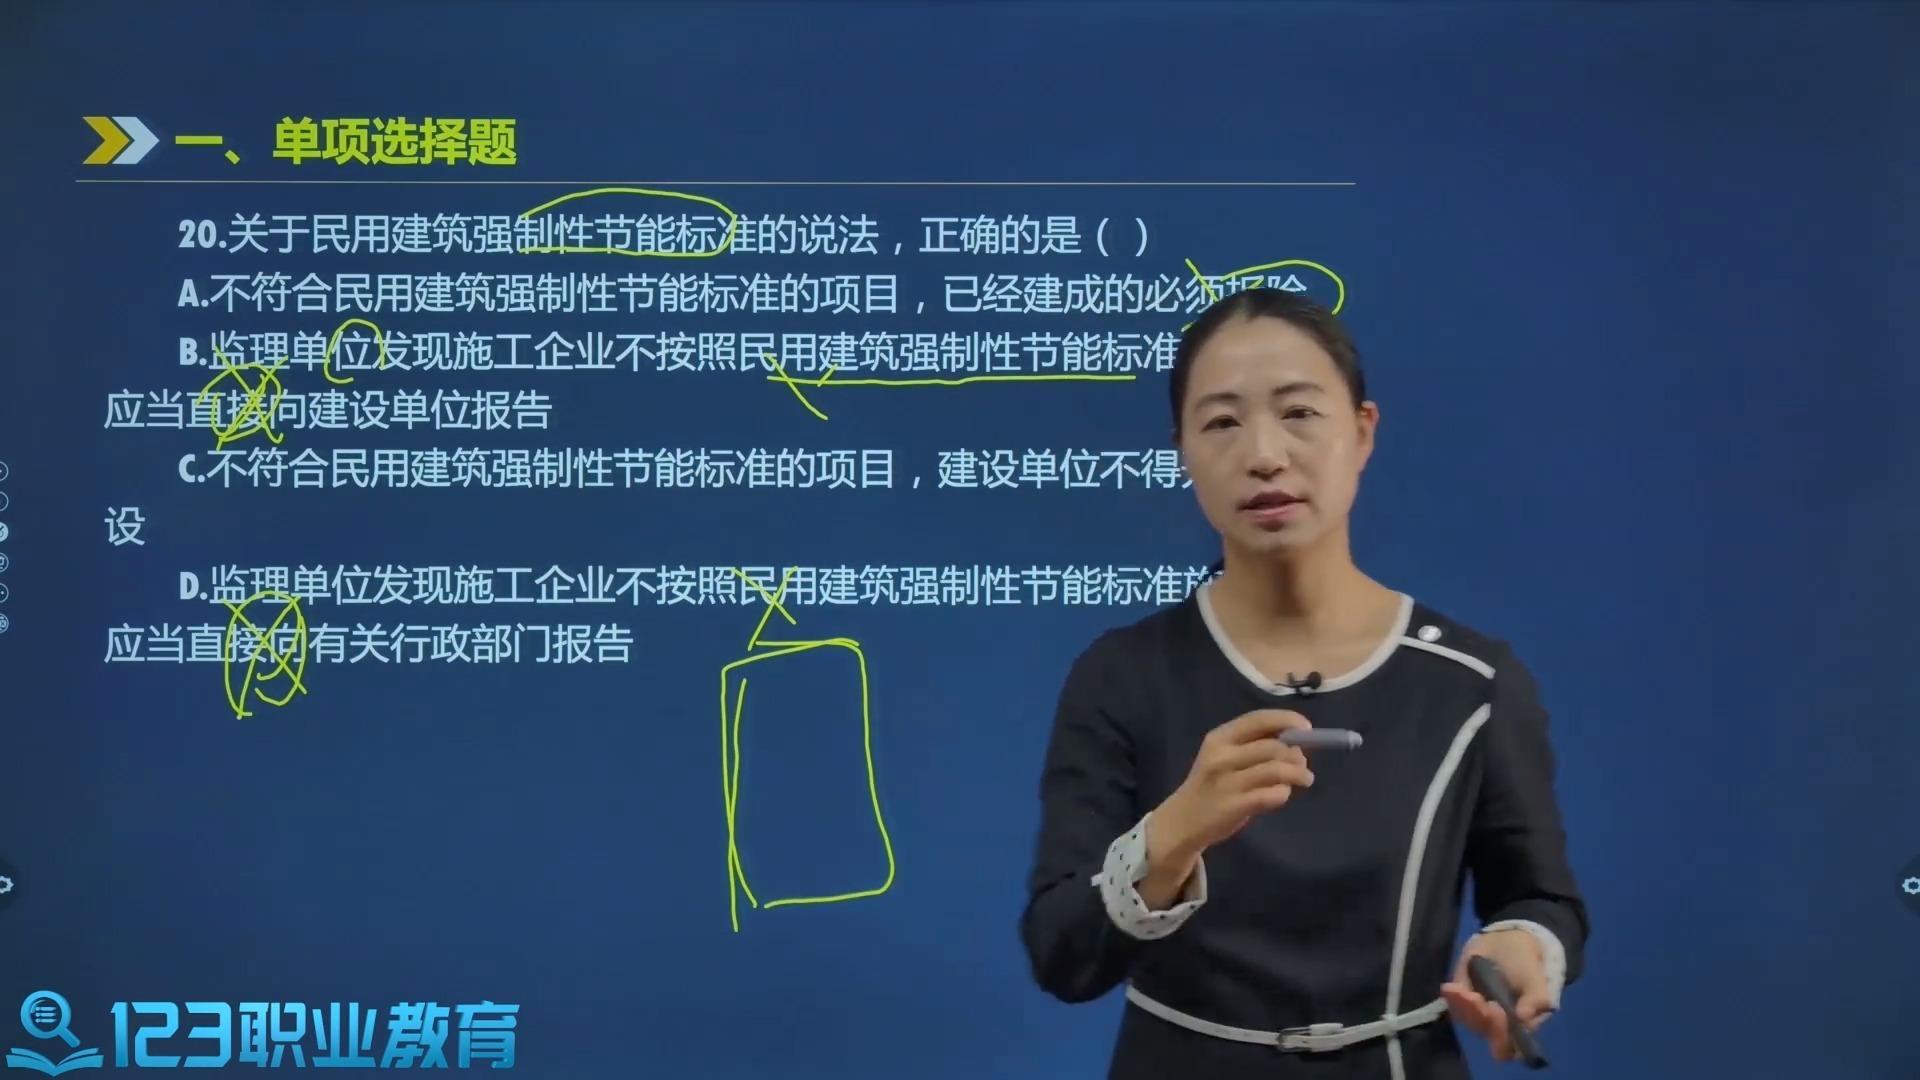 一、单项选择题
20.关于民用建筑强制性节能标准的说法，正确的是（ ）
A.不符合民用建筑强制性节能标准的项目，已经建成的必须拆除
B.监理单位发现施工企业不按照民用建筑强制性节能标准
应当直接向建设单位报告
C.不符合民用建筑强制性节能标准的项目，建设单位不得
设
D.监理单位发现施工企业不按照民用建筑强制性节能标准施
应当直接向有关行政部门报告
123职业教育